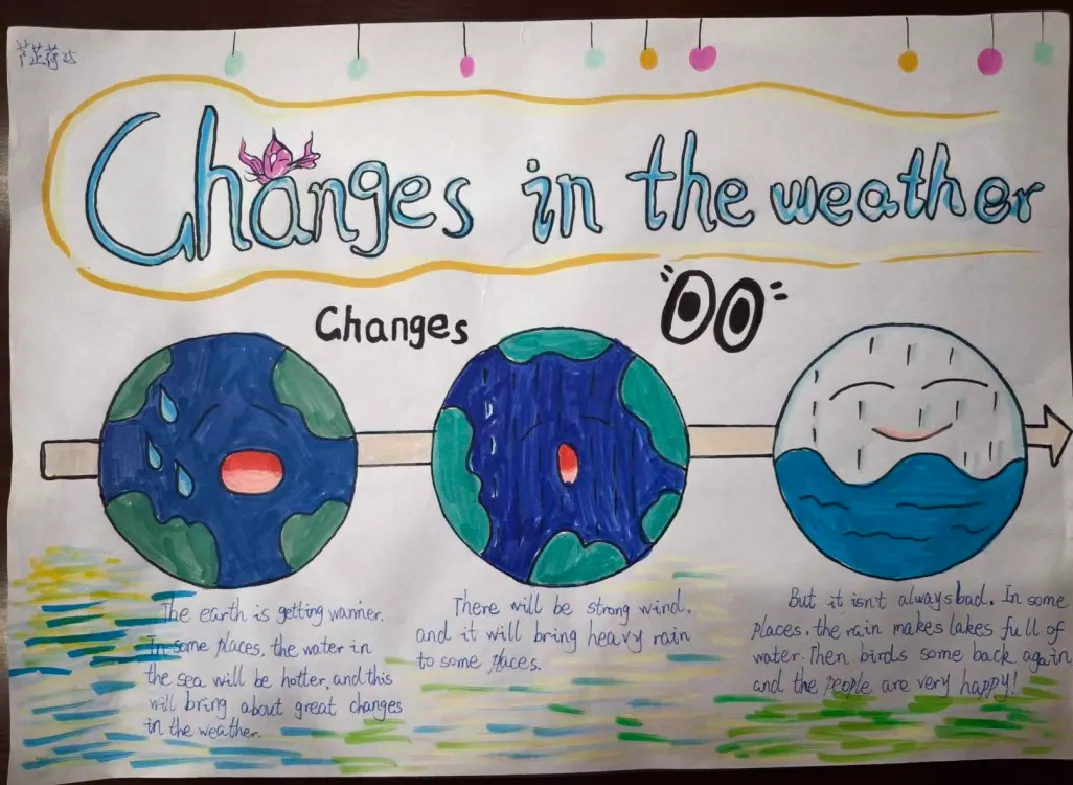 Changes in the weather
Changes
The earth is getting warmer.
In some places, the water in
the sea will be hotter, and this
will bring about great changes
in the weather.
There will be strong wind,
and it will bring heavy rain
to some places.
But it isn't always bad. In some
places, the rain makes lakes full of
water. Then birds some back again
and the people are very happy!